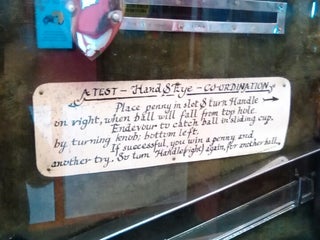 A TEST - Hand & Eye - CO-ORDINATION
Place penny in slot & turn Handle
on right, when ball will fall from top hole.
Endevour to catch ball in sliding cup,
by turning knob, bottom left.
If successful, you win a penny and
another try. So turn Handle (right) again, for another ball.